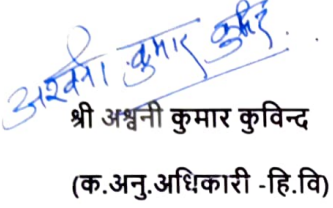 अश्वनी कुमार कुविंद
श्री अश्वनी कुमार कुविन्द
(क.अनु.अधिकारी -हि.वि)